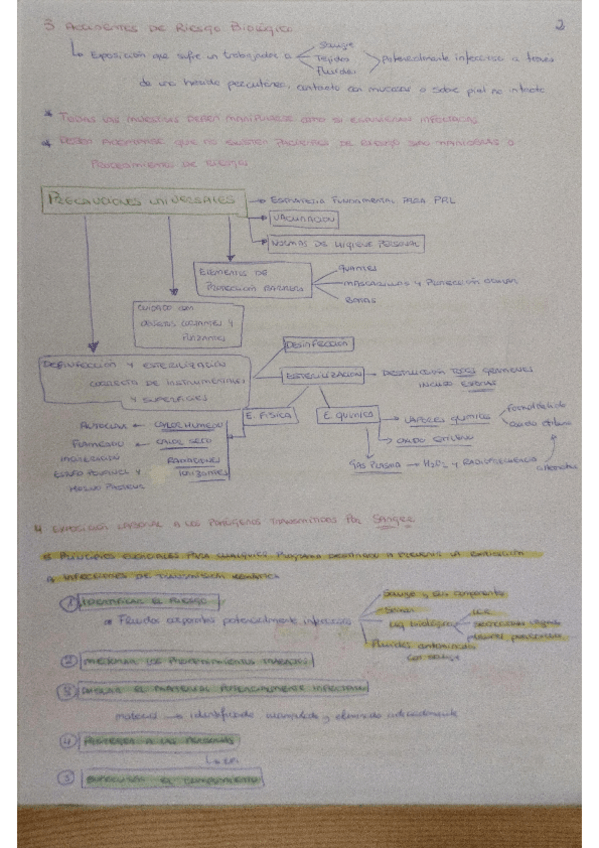 3 Accidentes de Riesgo Biológico
2
Exposición que sufre un trabajador a
Sangre
Tejidos
Fluidos
potencialmente infeccioso a través
de una herida percutánea, contacto con mucosas o sobre piel no intacta
* Todas las muestras deben manipularse como si estuvieran infectadas
* Deben asumirse que no existen pacientes de riesgo sino maniobras o
Procedimientos de riesgo
Precauciones universales
Estrategia fundamental para PRL
Vacunación
Normas de higiene personal
Elementos de
Protección barrera
guantes
mascarillas y protección ocular
batas
Cuidado con
objetos cortantes y
punzantes
Desinfección y esterilización
correcta de instrumentales
y superficies
Desinfección
Esterilización
Destrucción todos gérmenes
incluso esporas
E. Física
E. Química
Autoclave
Calor húmedo
Calor seco
Radiaciones
ionizantes
Vapores químicos
formaldehído
óxido etileno
Óxido etileno
Gas plasma
H2O2 y Radiofrecuencia
4 Exposición laboral a los patógenos transmitidos por Sangre
5 Principios esenciales para cualquier programa destinado a prevenir la exposición
a infecciones de transmisión hemática
1 Identificar el riesgo
Fluidos corporales potencialmente infecciosos
Sangre y sus componentes
Semen
Líq biológicos
LCR
secreción vaginal
Fluidos contaminados
con sangre
2 Mejorar los procedimientos trabajo
3 el material potencialmente infectado
material → identificado manipulado y eliminado adecuadamente
4 Proteger a las personas
5 el cumplimiento